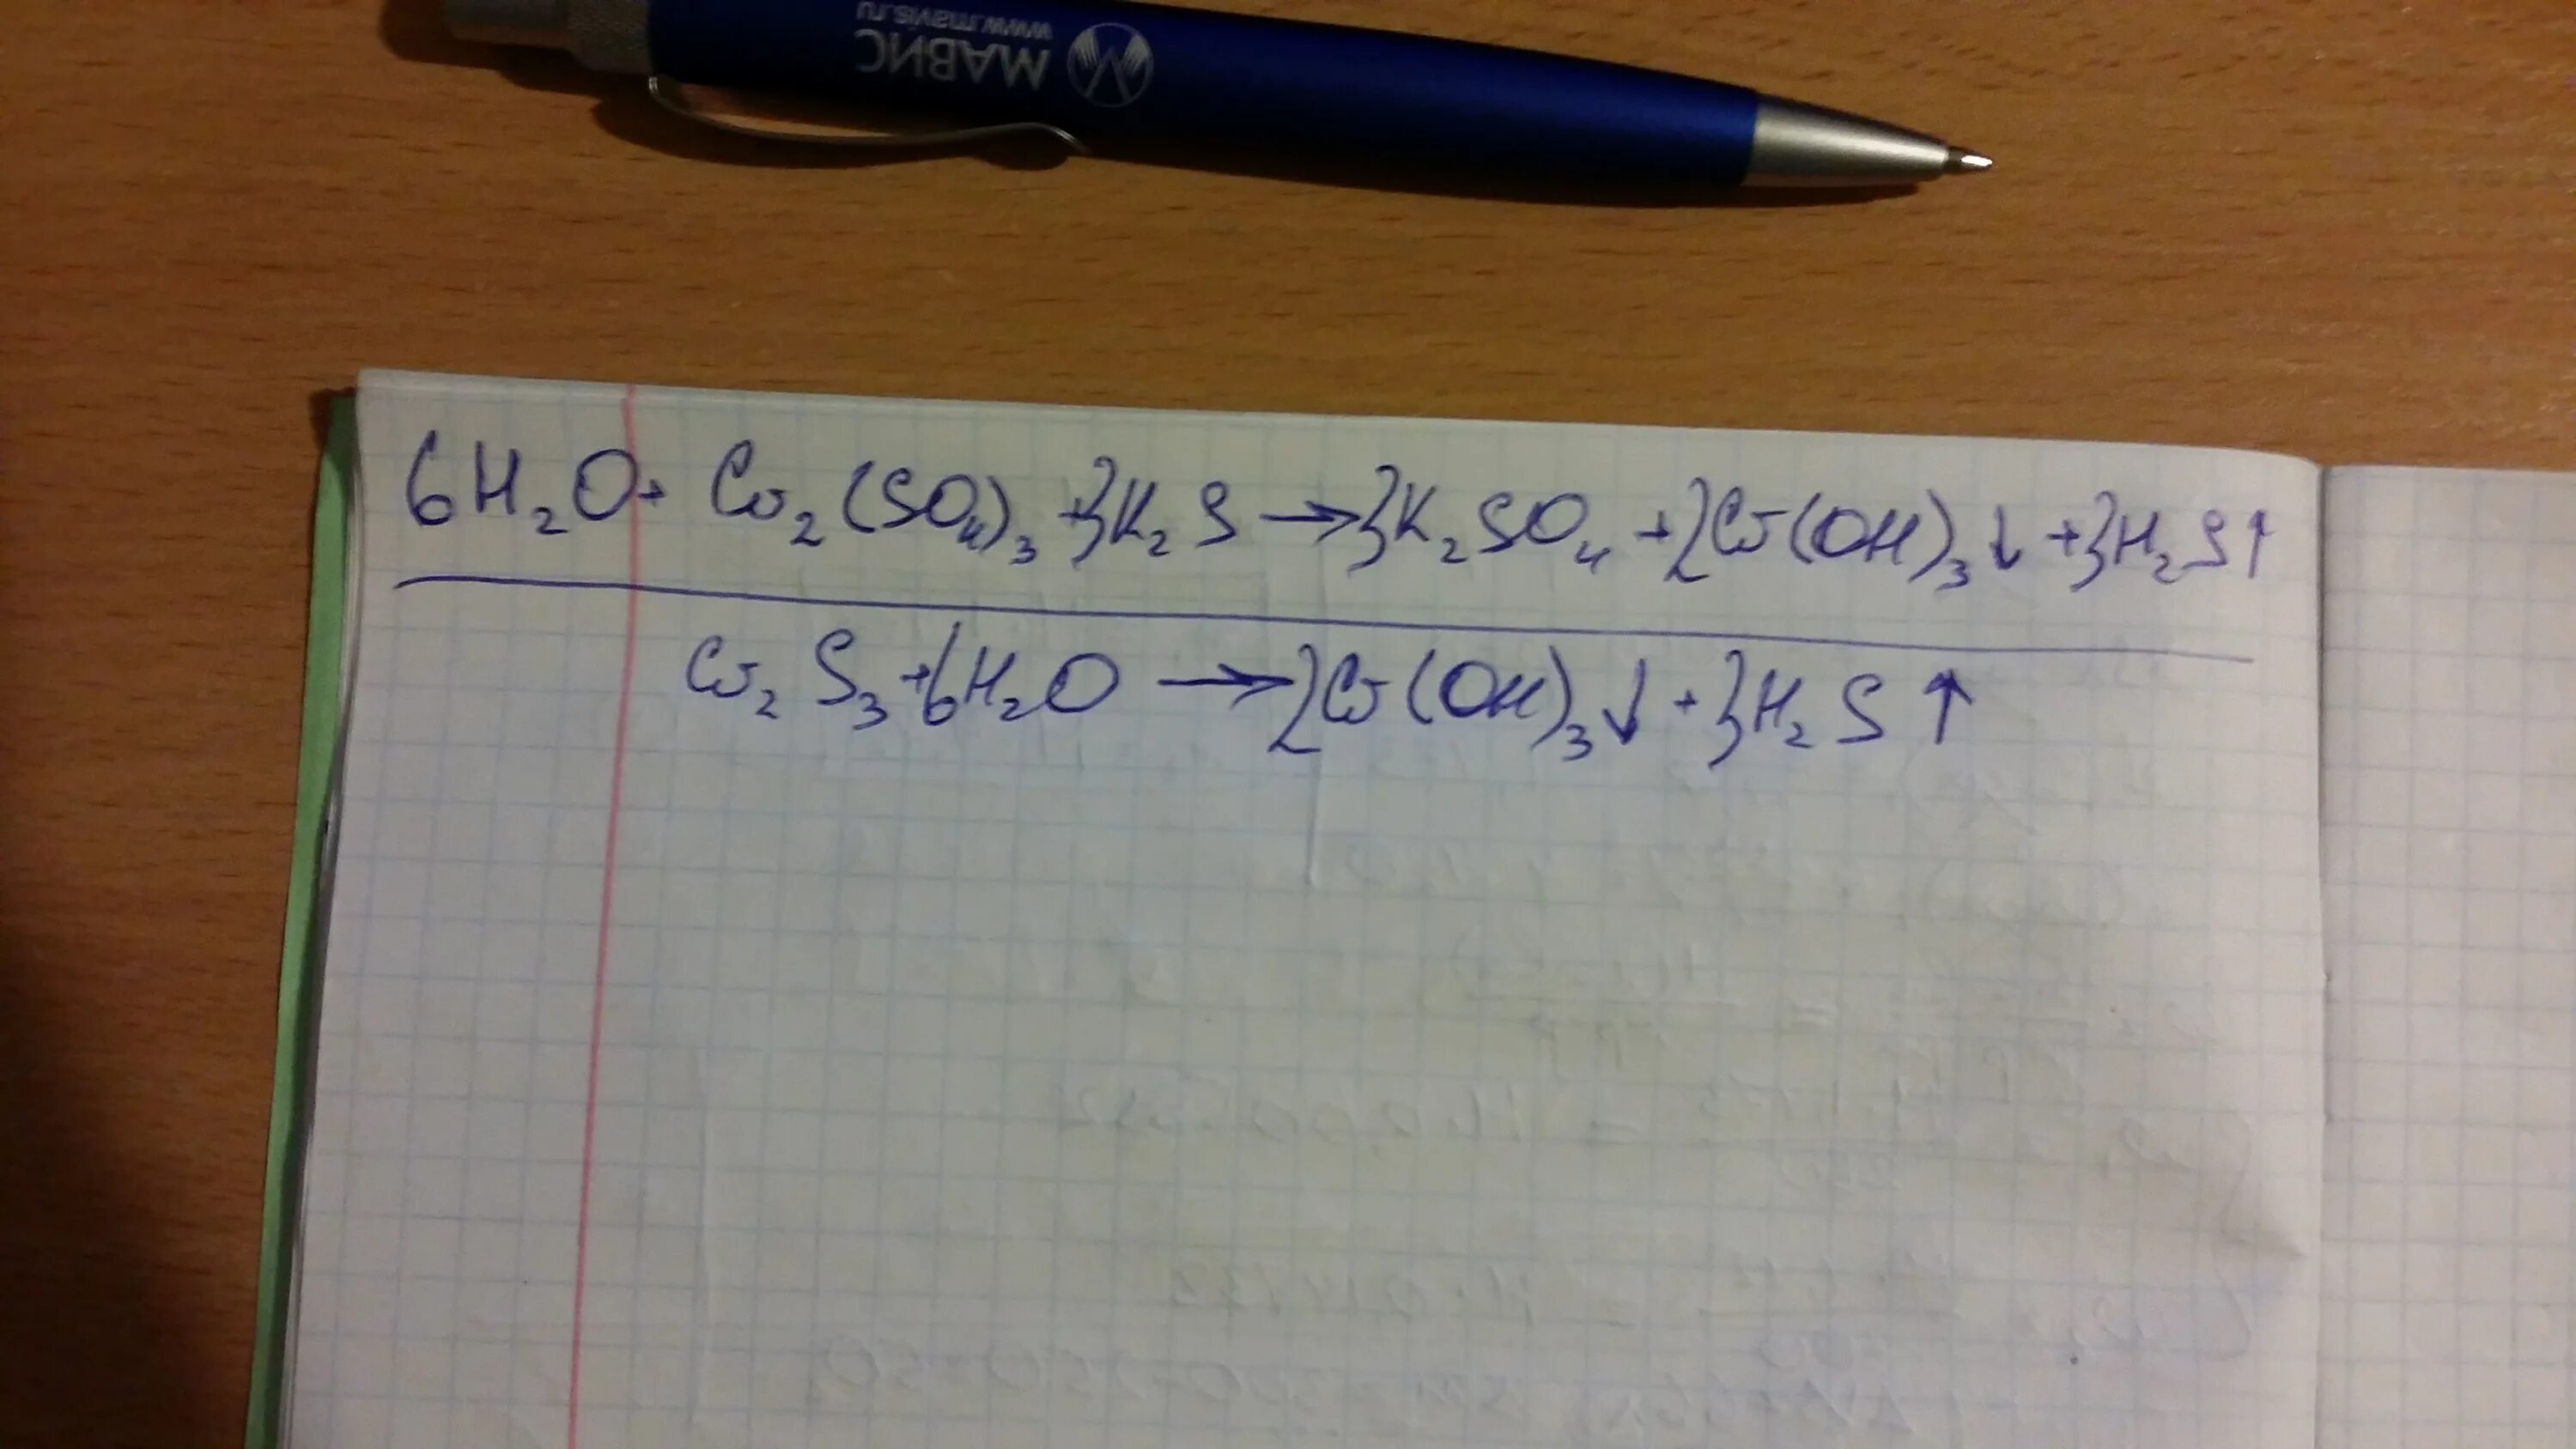 МАВИС
www.mavis.ru
6H₂O + Cr₂(SO₄)₃ + 3K₂S → 3K₂SO₄ + 2Cr(OH)₃↓ + 3H₂S↑
Cr₂S₃ + 6H₂O → 2Cr(OH)₃↓ + 3H₂S↑